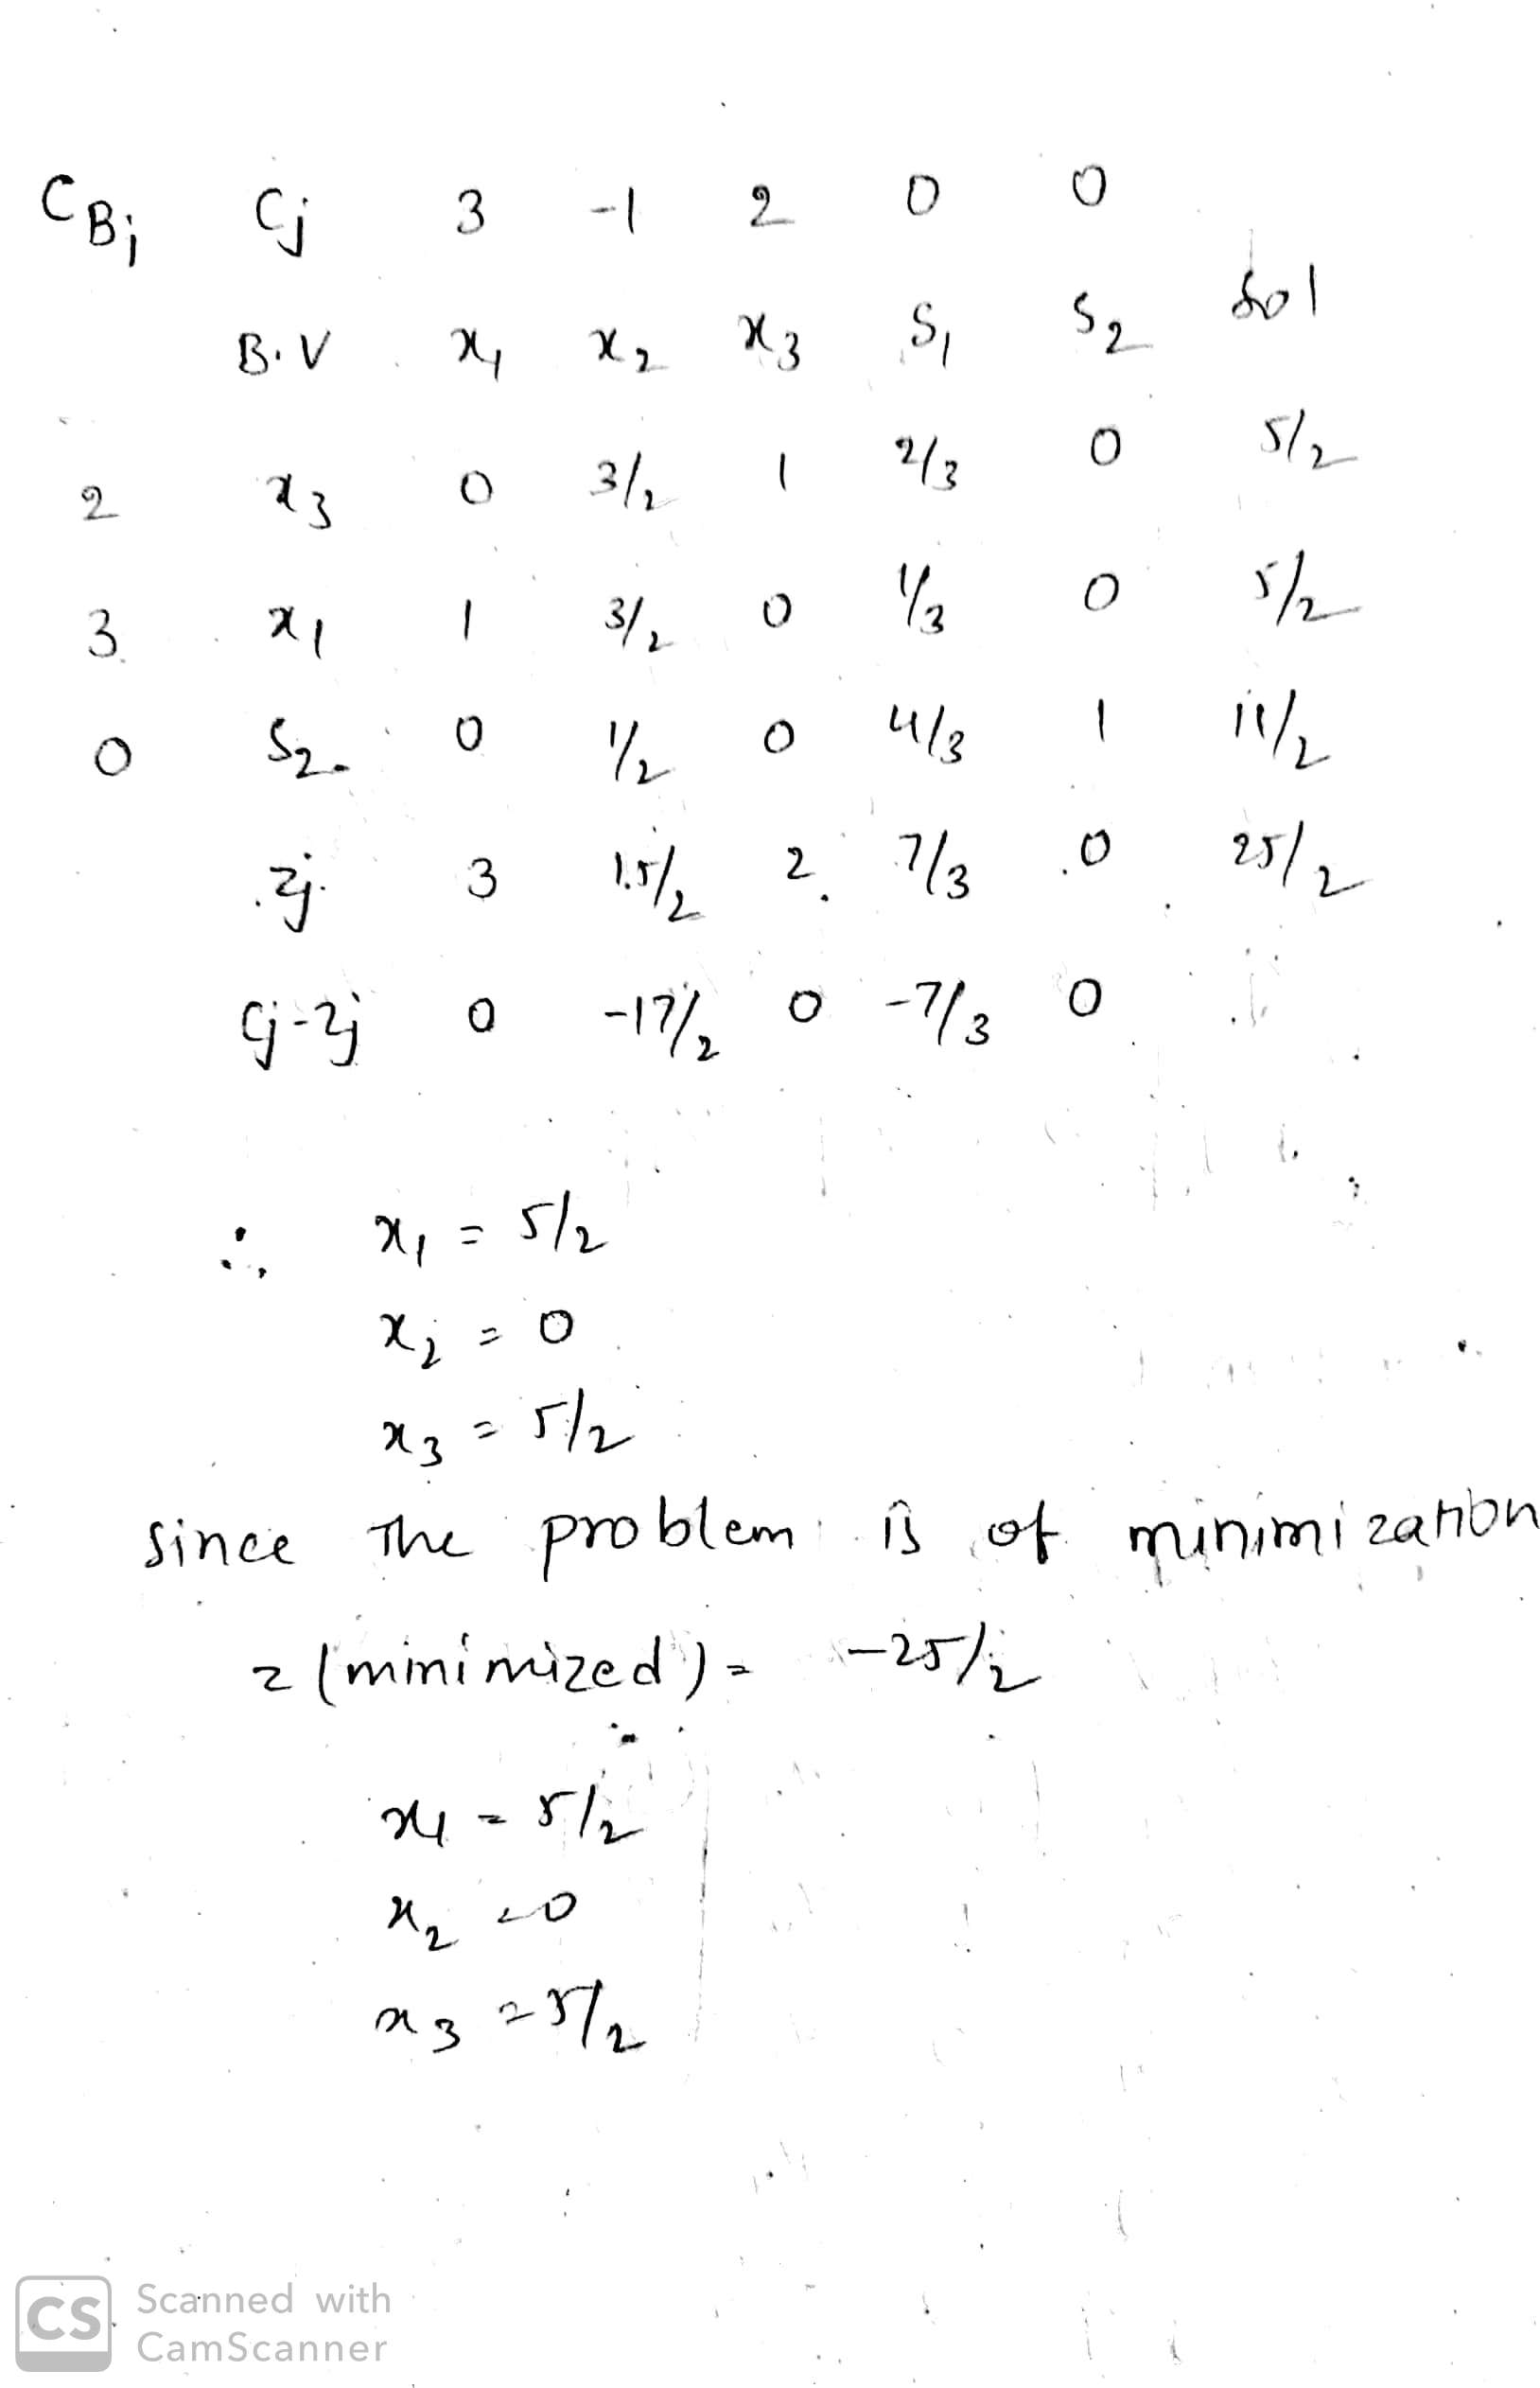 CBi Cj 3 -1 2 0 0
B.V x1 x2 x3 S1 S2 Sol
2 x3 0 3/2 1 2/3 0 5/2
3 x1 1 3/2 0 1/3 0 5/2
0 S2 0 1/2 0 4/3 1 11/2
Zj 3 15/2 2 7/3 0 25/2
Cj-Zj 0 -17/2 0 -7/3 0
∴ x1 = 5/2
x2 = 0
x3 = 5/2
Since The problem is of minimization
z (minimized) = -25/2
x1 = 5/2
x2 = 0
x3 = 5/2
CS Scanned with
CamScanner